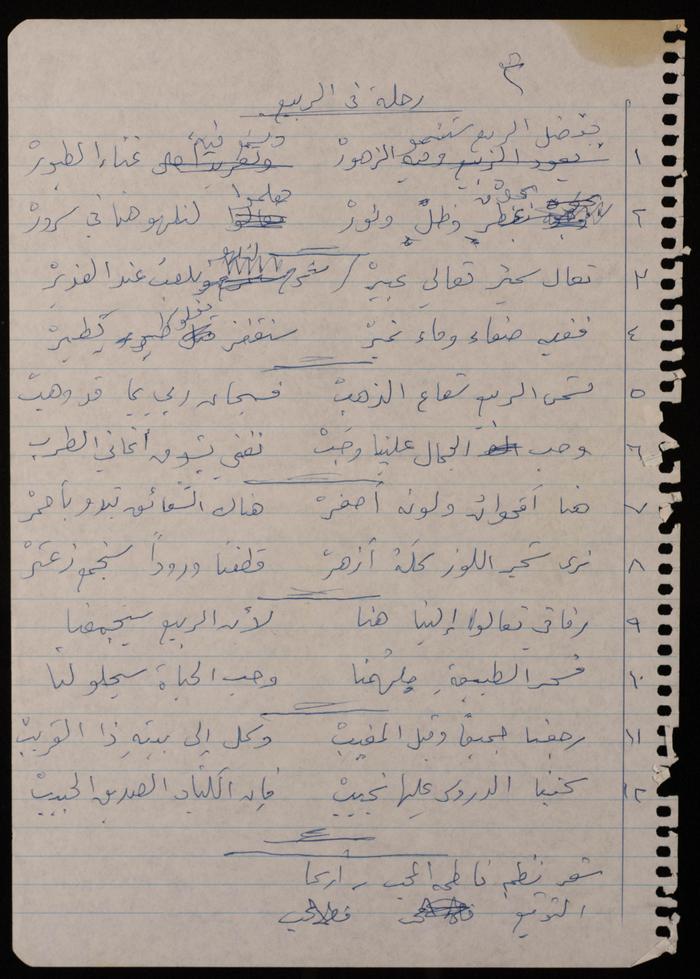 رحلة في الربيع
بفصل الربيع ستنمو
١ يعود الربيع وفيه الزهور غناء الطيور
هلموا
٢ وظل ونور لنلهو هنا في سرور
٣ تعال سمير تعالي عبير ونلعب عند الغدير
٤ ففيه صفاء وماء نمير سنقفز يطير
٥ شمس الربيع شعاع الذهب فسبحان ربي بما قد وهب
٦ وحب الجمال علينا وجب نغني بشوق أغاني الطرب
٧ هنا أقحوان ولون أصفر هناك الشقائق تبدو بأحمر
٨ نرى شجر اللوز كلة أزهر قطفنا وروداً سنجمع زعتر
٩ رفاقي تعالوا إلينا هنا لأن الربيع سيجمعنا
١٠ فسحر الطبيعة يلهمنا وحب الحياة سيحلو لنا
١١ رجعنا جميعاً وقبل المغيب وكل إلى بيته ذا القريب
١٢ كتبنا الدروس عليها نجيب فإن الكتاب الصديق الحبيب
شعر ونظم فاطمة المحب - أريحا
التوقيع